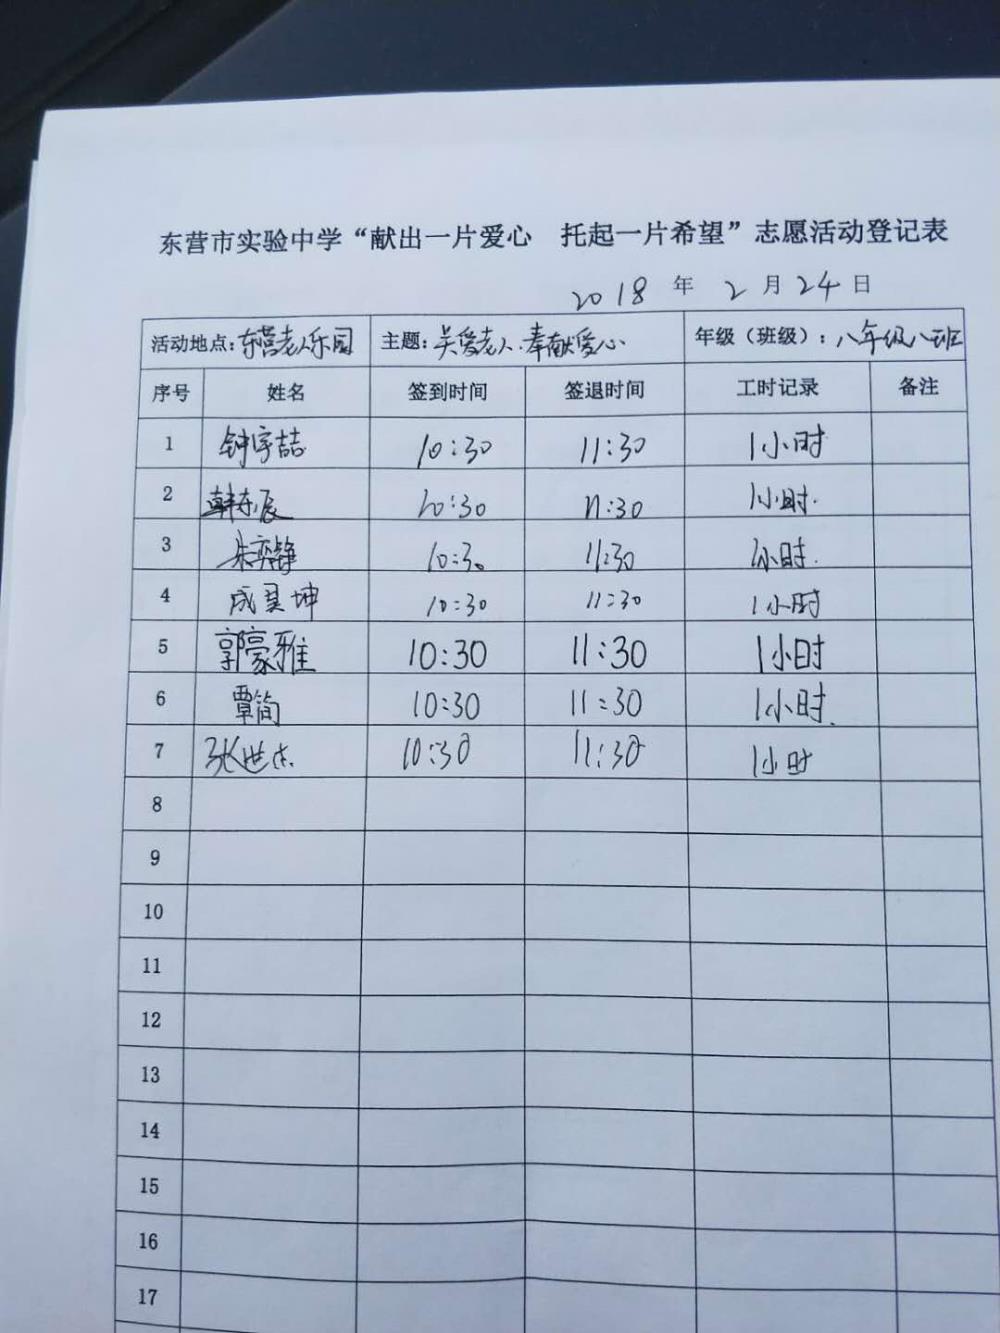 东营市实验中学“献出一片爱心 托起一片希望”志愿活动登记表
2018 年 2 月 24 日
活动地点:东营老人乐园 主题:关爱老人·奉献爱心· 年级（班级）:八年级八班
序号 姓名 签到时间 签退时间 工时记录 备注
1 钟宇喆 10:30 11:30 1小时
2 韩东辰 10:30 11:30 1小时.
3 朱奕铮 10:30 11:30 1小时.
4 成昊坤 10:30 11:30 1小时
5 郭豪雅 10:30 11:30 1小时
6 覃简 10:30 11:30 1小时.
7 张世杰 10:30 11:30 1小时
8
9
10
11
12
13
14
15
16
17